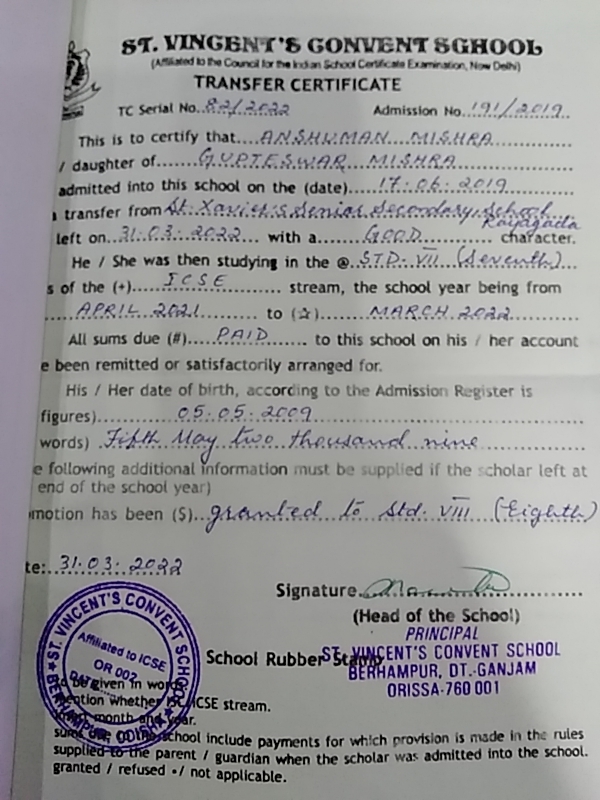 ST. VINCENT'S CONVENT SCHOOL
(Affiliated to the Council for the Indian School Certificate Examination, New Delhi)
TRANSFER CERTIFICATE
TC Serial No. 82/2022 Admission No. 191/2019
This is to certify that ANSHUMAN MISHRA
/ daughter of GUPTESWAR MISHRA
admitted into this school on the (date) 17.06.2019
transfer from St. Xavier's Senior Secondary School
Rayagada
left on 31.03.2022 with a GOOD character.
He / She was then studying in the @ STD-VII (Seventh)
s of the (+) ICSE stream, the school year being from
APRIL 2021 to (☆) MARCH 2022
All sums due (#) PAID to this school on his / her account
e been remitted or satisfactorily arranged for.
His / Her date of birth, according to the Admission Register is
figures) 05.05.2009
words) Fifth May two thousand nine
e following additional information must be supplied if the scholar left at
end of the school year)
motion has been ($) granted to Std. VIII (Eighth)
te: 31.03.2022
Signature
(Head of the School)
PRINCIPAL
ST. VINCENT'S CONVENT SCHOOL
BERHAMPUR, DT.-GANJAM
ORISSA-760 001
School Rubber Stamp
ST. VINCENT'S CONVENT SCHOOL
BERHAMPUR ODISHA
Affiliated to ICSE
OR 002
to be given in words
mention whether ISC/ICSE stream.
month and year.
sums due to the school include payments for which provision is made in the rules
supplied to the parent / guardian when the scholar was admitted into the school.
granted / refused / not applicable.